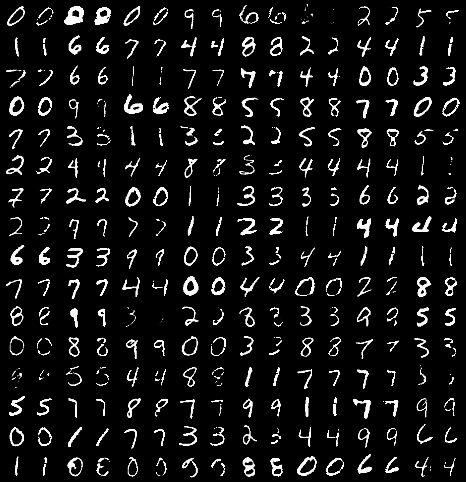 0 0 8 8 0 0 9 9 6 6 2 2 5 5
1 1 6 6 7 7 4 4 8 8 2 2 4 4 1 1
7 7 6 6 1 1 7 7 7 7 4 4 0 0 3 3
0 0 9 9 6 6 8 8 5 5 8 8 7 7 0 0
7 7 3 3 1 1 3 3 2 2 5 5 8 8 5 5
2 2 4 4 4 4 8 8 3 3 4 4 4 4 1 1
7 7 2 2 0 0 1 1 3 3 3 3 6 6 2 2
2 2 9 9 7 7 1 1 2 2 1 1 4 4 4 4
6 6 3 3 9 9 0 0 3 3 4 4 1 1 1 1
7 7 7 7 4 4 0 0 4 4 0 0 2 2 8 8
8 8 9 9 3 2 2 8 8 3 3 9 9 5 5
0 0 8 8 9 9 0 0 3 3 8 8 7 7 3 3
5 5 4 4 8 8 1 1 7 7 7 7
5 5 7 7 8 8 7 7 9 9 1 1 7 7 9 9
0 0 1 1 7 7 3 3 2 3 4 4 9 9 6 6
1 1 0 0 0 0 8 8 0 0 6 6 4 4